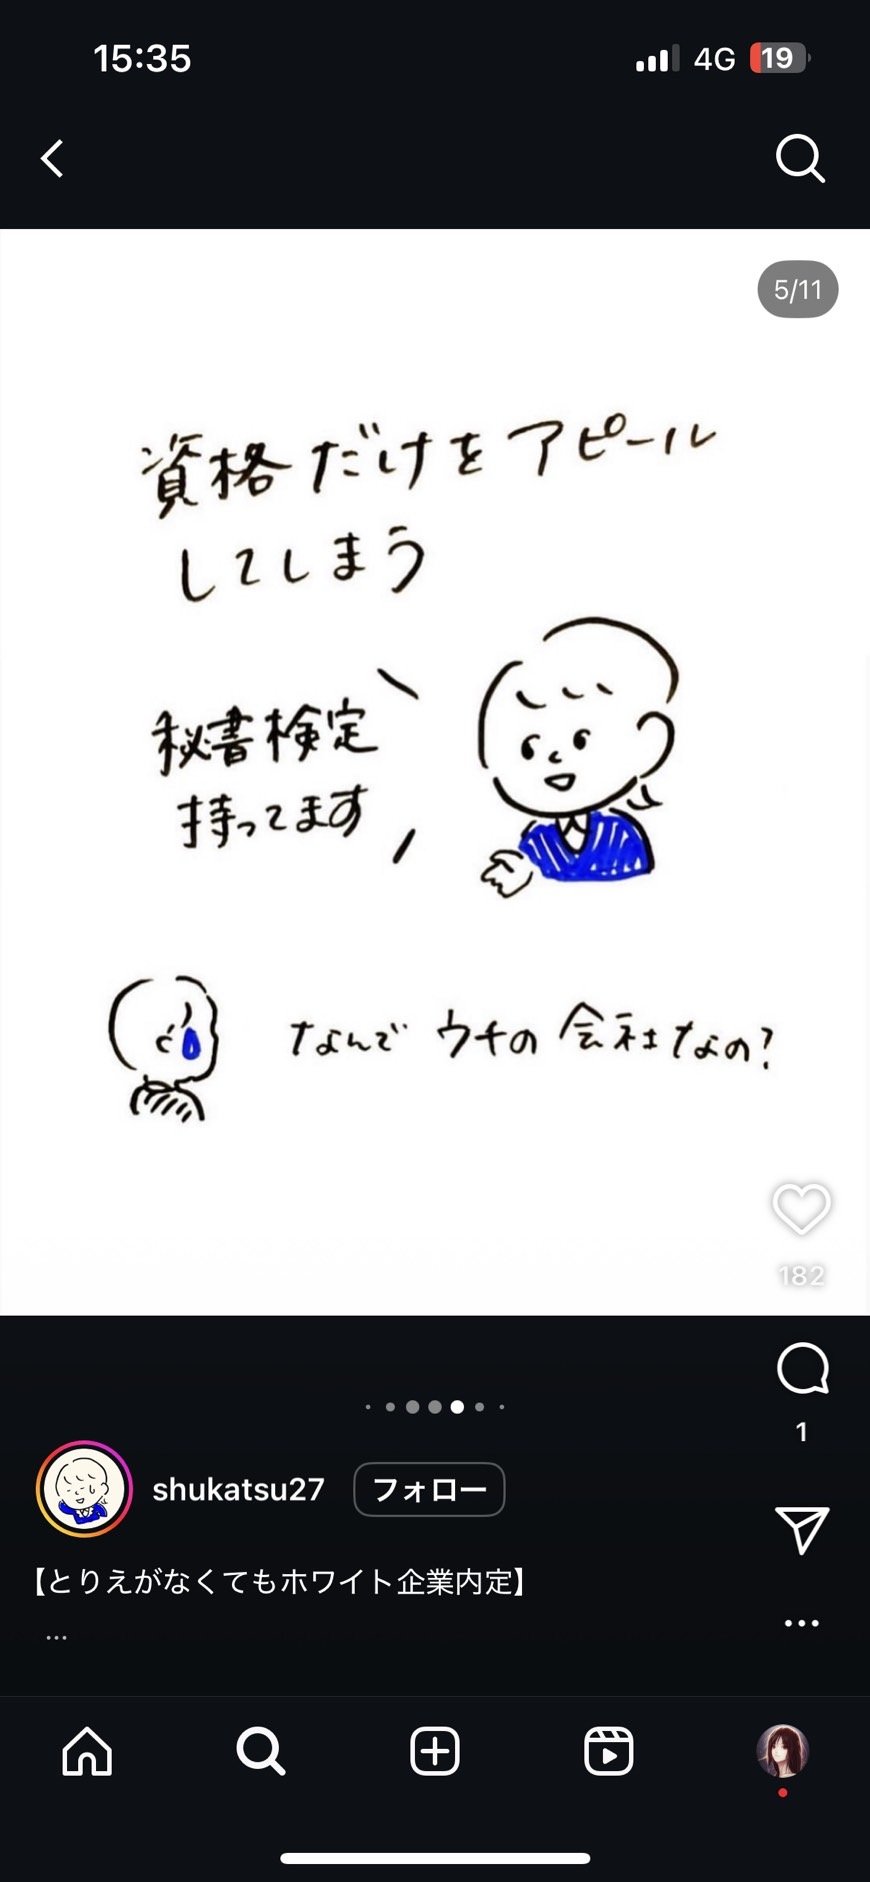 15:35
4G
19
5/11
資格だけをアピール
してしまう
秘書検定
持ってます
なんで ウチの会社なの?
182
1
shukatsu27
フォロー
【とりえがなくてもホワイト企業内定】
...